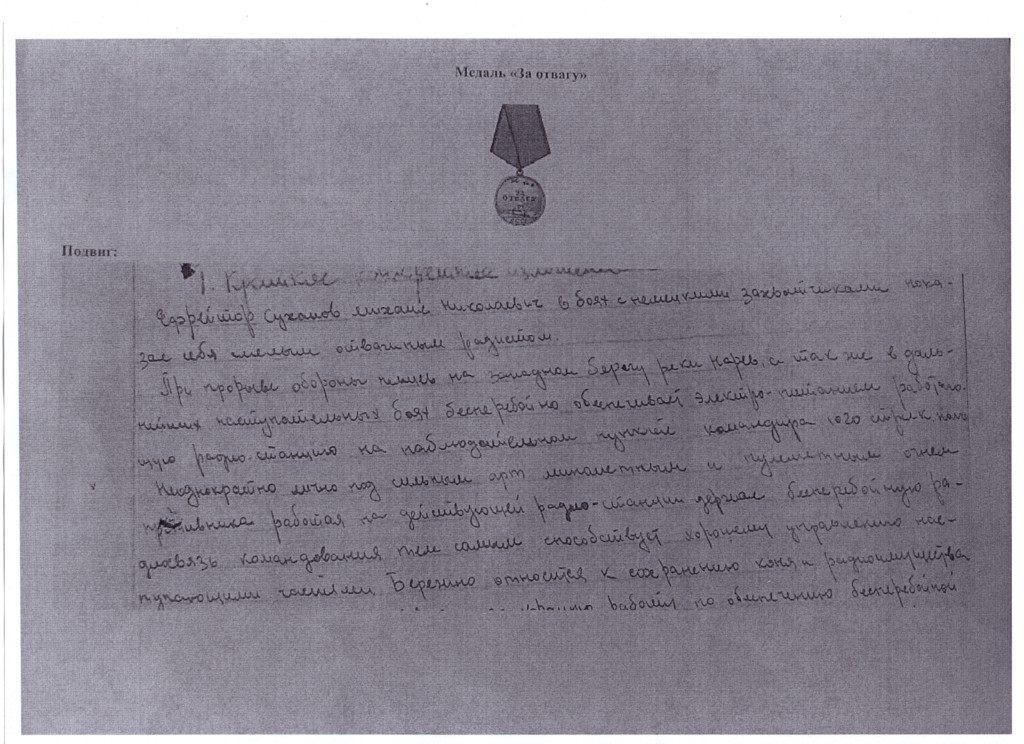 Медаль «За отвагу»
ЗА
ОТВАГУ
Подвиг:
1. Краткое конкретное изложение
Ефрейтор Суханов Михаил Николаевич в боях с немецкими захватчиками пока-
зал себя смелым отважным радистом.
При прорыве обороны немцев на западном берегу реки Нарев, а так же в даль-
нейших наступательных боях бесперебойно обеспечивает электро-питанием работаю-
щую радио-станцию на наблюдательном пункте командира
Неоднократно лично под сильным арт миномётным и пулемётным огнем
противника работая на действующей радио-станции держал бесперебойную ра-
диосвязь командования тем самым способствует хорошему управлению нас-
тупающими частями. Бережно относится к сохранению коня и радиоимущества
работу по обеспечению бесперебойной